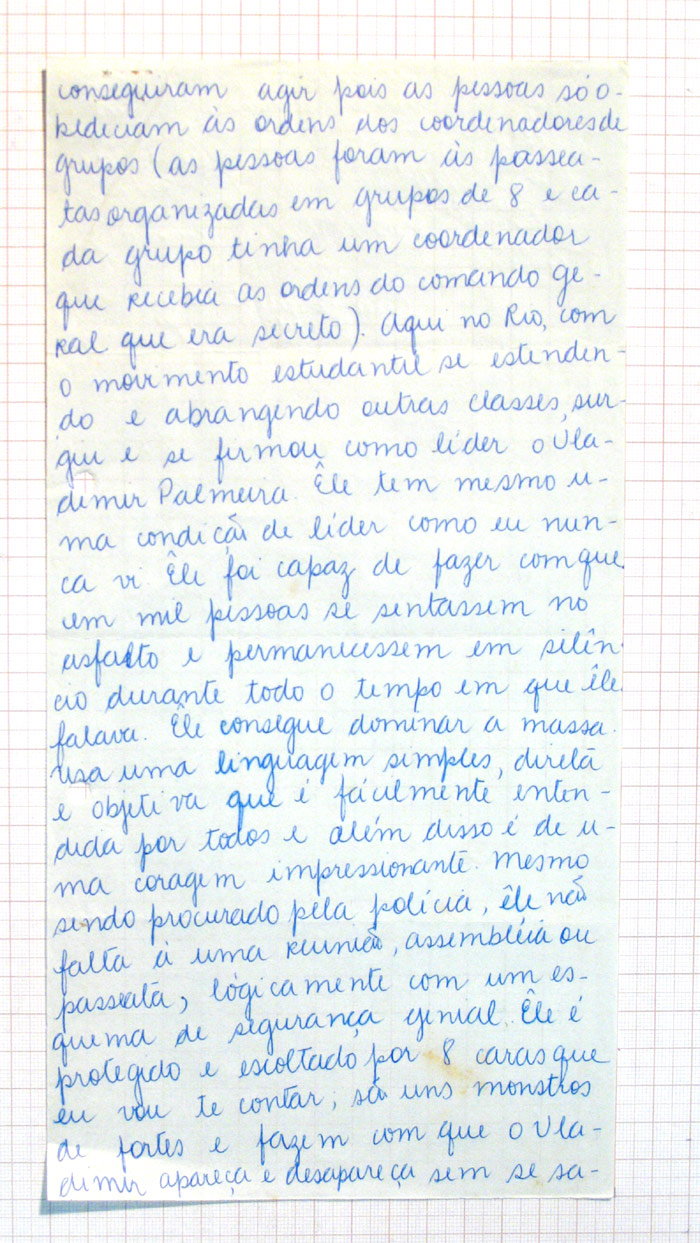 conseguiram agir pois as pessoas só o-
bedeciam às ordens dos coordenadores de
grupos (as pessoas foram às passea-
tas organizadas em grupos de 8 e ca-
da grupo tinha um coordenador
que recebia as ordens do comando ge-
ral que era secreto). Aqui no Rio, com
o movimento estudantil se estenden-
do e abrangendo outras classes, sur-
giu e se firmou como líder o Vla-
dimir Palmeira. Êle tem mesmo u-
ma condição de líder como eu nun-
ca vi. Êle foi capaz de fazer com que
cem mil pessoas se sentassem no
asfalto e permanecessem em silên-
cio durante todo o tempo em que êle
falava. Êle consegue dominar a massa.
Usa uma linguagem simples, direta
e objetiva que é fácilmente enten-
dida por todos e além disso é de u-
ma coragem impressionante. Mesmo
sendo procurado pela polícia, êle não
falta à uma reunião, assembléia ou
passeata, lógicamente com um es-
quema de segurança genial. Êle é
protegido e escoltado por 8 caras que
eu vou te contar, são uns monstros
de fortes e fazem com que o Vla-
dimir apareça e desapareça sem se sa-